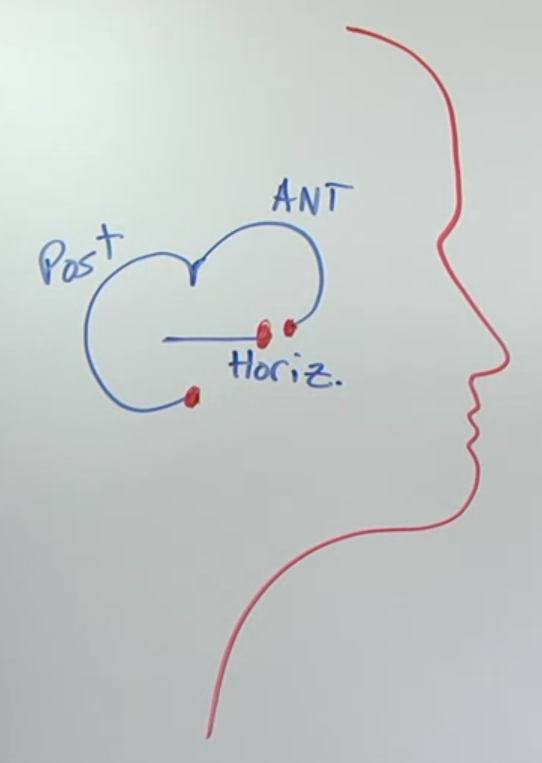 ANT
Post
Horiz.